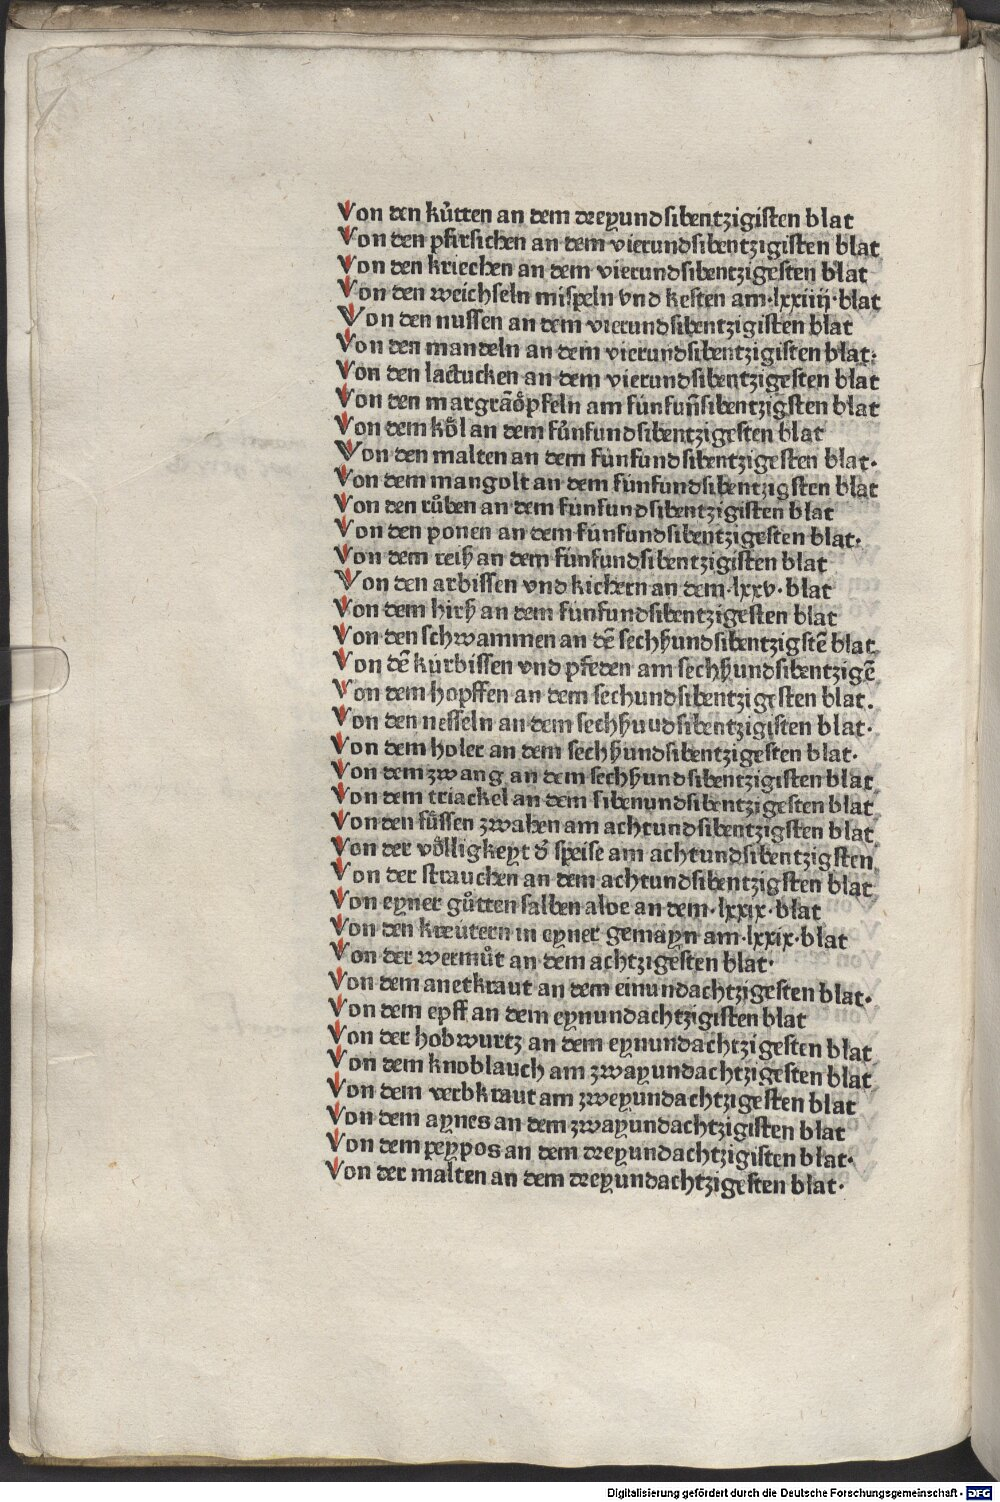 Von den kůtten an dem dreyundsibentzigisten blat
Von den pfirsichen an dem vierundsibentzigisten blat
Von den kriechen an dem vierundsibentzigesten blat
Von den weichseln mispeln vnd kesten am·lxxiiij·blat
Von den nussen an dem vierundsibentzigisten blat
Von den mandeln an dem vierundsibentzigisten blat·
Von den lactucken an dem vierundsibentzigesten blat
Von den margrãoͤpfeln am fúnfuñsibentzigsten blat
Von dem koͤl an dem fůnfundsibentzigesten blat
Von den malten an dem fúnfundsibentzigesten blat·
Von dem mangolt an dem fúnfundsibentzigsten blat
Von den růben an dem fúnfundsibentzigisten blat
Von den ponen an dem fúnfundsibentzigesten blat·
Von dem reiß an dem fúnfundsibentzigisten blat
Von den arbissen vnd kichern an dem·lxxv·blat
Von dem hirß an dem fúnfundsibentzigesten blat
Von den schwammen an dē sechßundsibentzigstē blat
Von dē kúrbissen vnd pfeden am sechßundsibentzigē
Von dem hopffen an dem sechundsibentzigesten blat·
Von den nesseln an dem sechßuudsibentzigisten blat·
Von dem holer an dem sechßundsibentzigesten blat·
Von dem zwang an dem sechßundsibentzigisten blat
Von dem triackel an dem sibenundsibentzigesten blat
Von den fůssen zwahen am achtundsibentzigsten blat
Von der voͤlligkeyt d̕ speise am achtundsibentzigsten
Von der strauchen an dem achtundsibentzigsten blat
Von eyner gůtten salben aloe an dem·lxxix·blat
Von den kreútern in eyner gemayn am·lxxix·blat
Von der wermůt an dem achtzigesten blat·
Von dem anetkraut an dem einundachtzigesten blat·
Von dem epff an dem eynundachtzigisten blat
Von der hobwurtz an dem eynundachtzigesten blat
Von dem knoblauch am zwayundachtzigesten blat
Von dem verbkraut am zweyundachtzigesten blat
Von dem aynes an dem zwayundachtzigisten blat
Von dem peypos an dem dreyundachtzigisten blat·
Von der malten an dem dreyundachtzigesten blat·
Digitalisierung gefördert durch die Deutsche Forschungsgemeinschaft - DFG